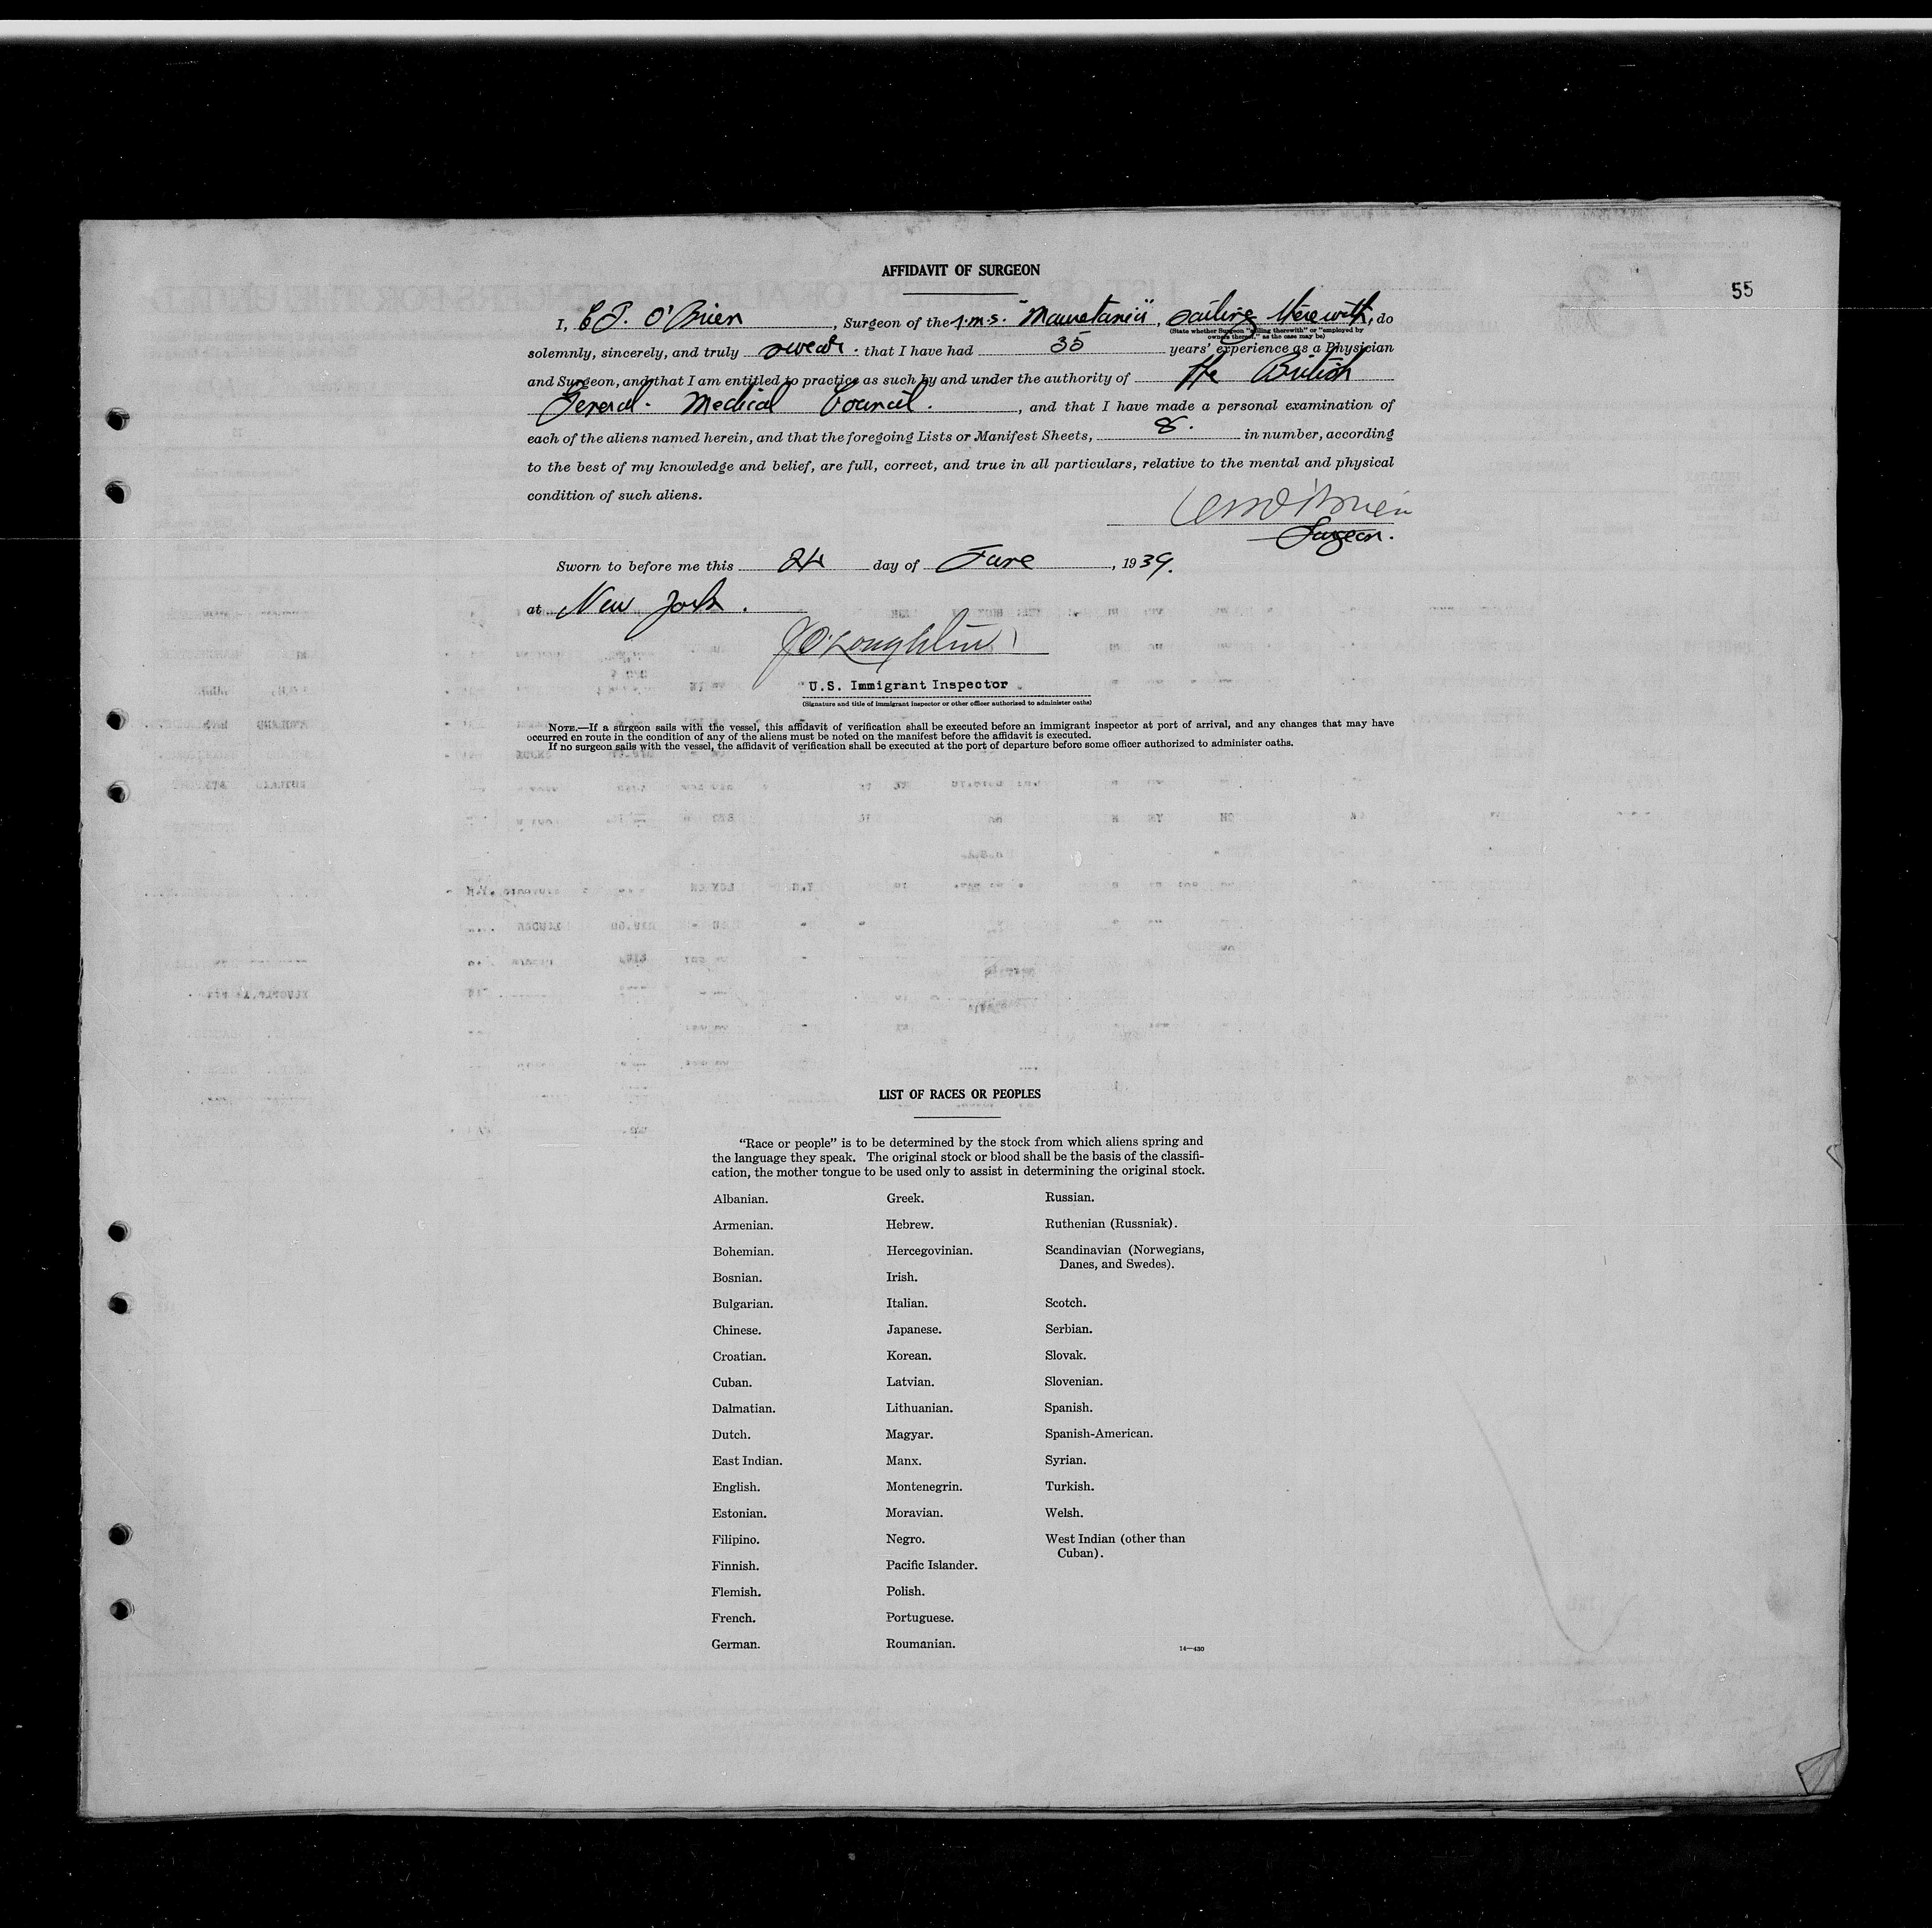 55
AFFIDAVIT OF SURGEON
I, C.P. O'Brien, Surgeon of the s.m.s. "Mauretania", sailing therewith, do
(State whether Surgeon "sailing therewith" or "employed by
owners thereof," as the case may be)
solemnly, sincerely, and truly swear. that I have had 35 years' experience as a Physician
and Surgeon, and that I am entitled to practice as such by and under the authority of the British
General Medical Council., and that I have made a personal examination of
each of the aliens named herein, and that the foregoing Lists or Manifest Sheets, 8. in number, according
to the best of my knowledge and belief, are full, correct, and true in all particulars, relative to the mental and physical
condition of such aliens.
O'Brien
Surgeon.
Sworn to before me this 24 day of June, 1939.
at New York.
J O'Loughlin
U.S. Immigrant Inspector
(Signature and title of immigrant inspector or other officer authorized to administer oaths)
NOTE.—If a surgeon sails with the vessel, this affidavit of verification shall be executed before an immigrant inspector at port of arrival, and any changes that may have
occurred en route in the condition of any of the aliens must be noted on the manifest before the affidavit is executed.
If no surgeon sails with the vessel, the affidavit of verification shall be executed at the port of departure before some officer authorized to administer oaths.
LIST OF RACES OR PEOPLES
"Race or people" is to be determined by the stock from which aliens spring and
the language they speak. The original stock or blood shall be the basis of the classifi-
cation, the mother tongue to be used only to assist in determining the original stock.
Albanian.
Armenian.
Bohemian.
Bosnian.
Bulgarian.
Chinese.
Croatian.
Cuban.
Dalmatian.
Dutch.
East Indian.
English.
Estonian.
Filipino.
Finnish.
Flemish.
French.
German.
Greek.
Hebrew.
Hercegovinian.
Irish.
Italian.
Japanese.
Korean.
Latvian.
Lithuanian.
Magyar.
Manx.
Montenegrin.
Moravian.
Negro.
Pacific Islander.
Polish.
Portuguese.
Roumanian.
Russian.
Ruthenian (Russniak).
Scandinavian (Norwegians,
Danes, and Swedes).
Scotch.
Serbian.
Slovak.
Slovenian.
Spanish.
Spanish-American.
Syrian.
Turkish.
Welsh.
West Indian (other than
Cuban).
14—430